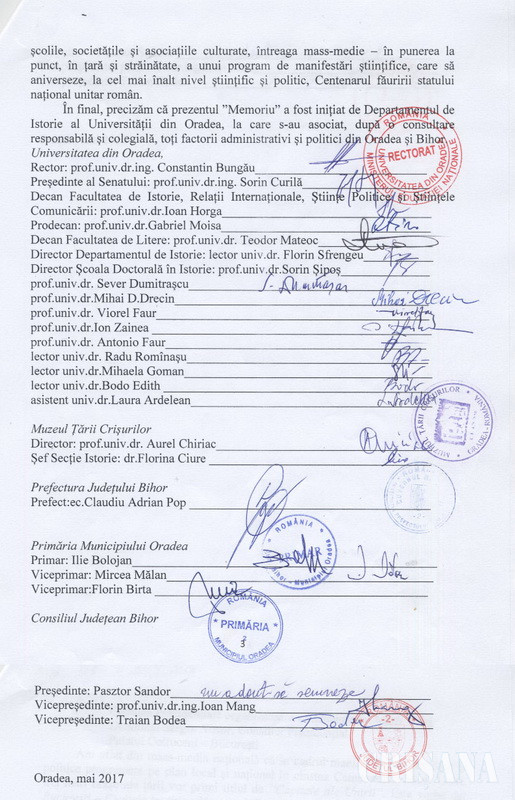 școlile, societățile și asociațiile culturate, întreaga mass-medie – în punerea la
punct, în țară și străinătate, a unui program de manifestări științifice, care să
aniverseze, la cel mai înalt nivel științific și politic, Centenarul făuririi statului
național unitar român.
În final, precizăm că prezentul ”Memoriu” a fost inițiat de Departamentul de
Istorie al Universității din Oradea, la care s-au asociat, după o consultare
responsabilă și colegială, toți factorii administrativi și politici din Oradea și Bihor.
Universitatea din Oradea,
Rector: prof.univ.dr.ing. Constantin Bungău
Președinte al Senatului: prof.univ.dr.ing. Sorin Curilă
Decan Facultatea de Istorie, Relații Internaționale, Științe Politice și Științele
Comunicării: prof.univ.dr.Ioan Horga
Prodecan: prof.univ.dr.Gabriel Moisa
Decan Facultatea de Litere: prof.univ.dr. Teodor Mateoc
Director Departamentul de Istorie: lector univ.dr. Florin Sfrengeu
Director Școala Doctorală în Istorie: prof.univ.dr.Sorin Șipoș
prof.univ.dr. Sever Dumitrașcu
prof.univ.dr.Mihai D.Drecin
Mihai Drecin
prof.univ.dr. Viorel Faur
prof.univ.dr.Ion Zainea
prof.univ.dr. Antonio Faur
lector univ.dr. Radu Romînașu
lector univ.dr.Mihaela Goman
lector univ.dr.Bodo Edith
Bodo
asistent univ.dr.Laura Ardelean
ROMÂNIA
MINISTERUL EDUCAȚIEI NAȚIONALE
UNIVERSITATEA DIN ORADEA
RECTORAT
Muzeul Țării Crișurilor
Director: prof.univ.dr. Aurel Chiriac
Șef Secție Istorie: dr.Florina Ciure
ROMÂNIA
MUZEUL ȚĂRII CRIȘURILOR
ORADEA
Prefectura Județului Bihor
Prefect:ec.Claudiu Adrian Pop
Primăria Municipiului Oradea
Primar: Ilie Bolojan
Viceprimar: Mircea Mălan
Viceprimar:Florin Birta
ROMÂNIA
PRIMAR
Municipiul Oradea
ROMÂNIA
* PRIMĂRIA *
MUNICIPIUL ORADEA
3
Consiliul Județean Bihor
Președinte: Pasztor Sandor nu a dorit să semneze
Vicepreședinte: prof.univ.dr.ing.Ioan Mang
Vicepreședinte: Traian Bodea
Bodea
-2-
JUDEȚUL BIHOR
Oradea, mai 2017
CRIȘANA